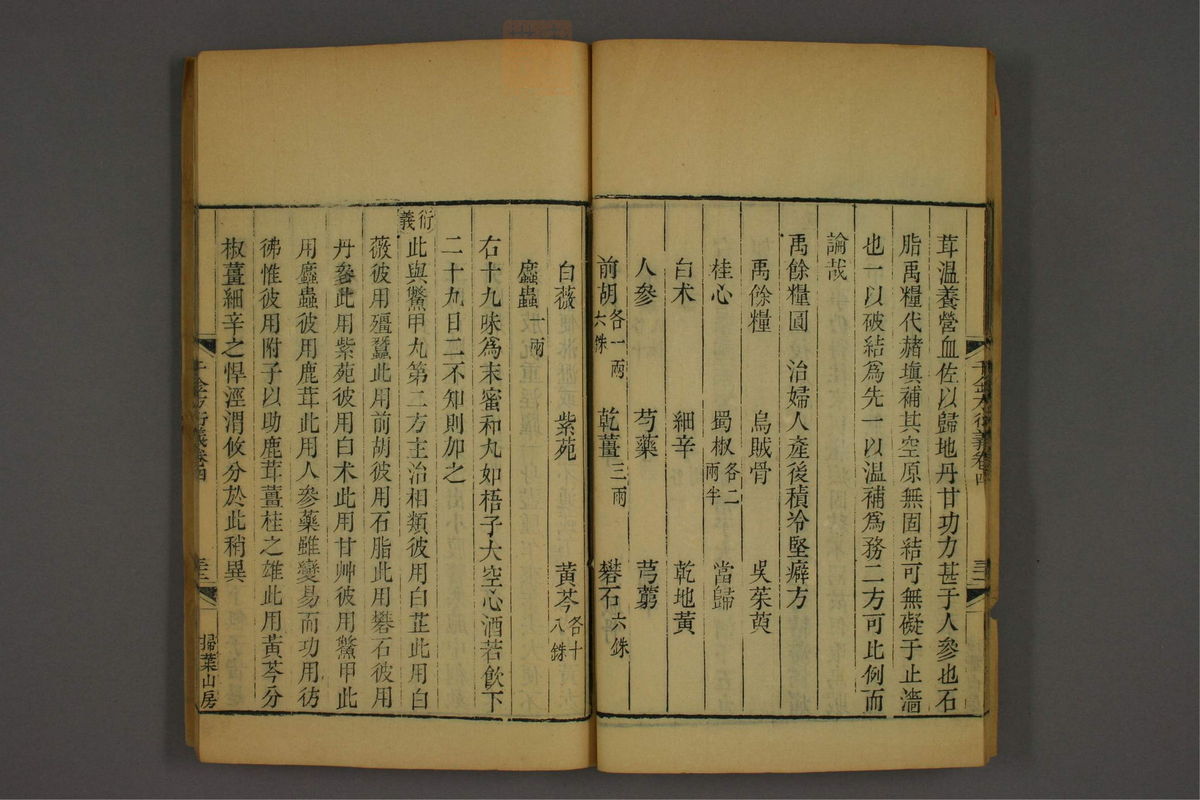 茸溫養營血佐以歸地丹甘功力甚于人參也石
脂禹糧代赭塡補其空原無固結可無礙于止濇
也一以破結爲先一以溫補爲務二方可比例而
論哉
禹餘糧圓　治婦人產後積冷堅癖方
禹餘糧　烏賊骨　吳茱萸
桂心　蜀椒各二兩半　當歸
白朮　細辛　乾地黃
人參　芍藥　芎藭
前胡各一兩六銖　乾薑三兩　礬石六銖
千金方衍義卷四
白薇　紫苑　黃芩各十八銖
䗪蟲一兩
右十九味爲末蜜和丸如梧子大空心酒若飮下
二十九日二不知則加之
衍義
此與鱉甲丸第二方主治相類彼用白芷此用白
薇彼用殭蠶此用前胡彼用石脂此用礬石彼用
丹參此用紫苑彼用白朮此用甘艸彼用鱉甲此
用䗪蟲彼用鹿茸此用人參藥雖變易而功用彷
彿惟彼用附子以助鹿茸薑桂之雄此用黃芩分
椒薑細辛之悍涇渭攸分於此稍異
千金方衍義卷四
掃葉山房